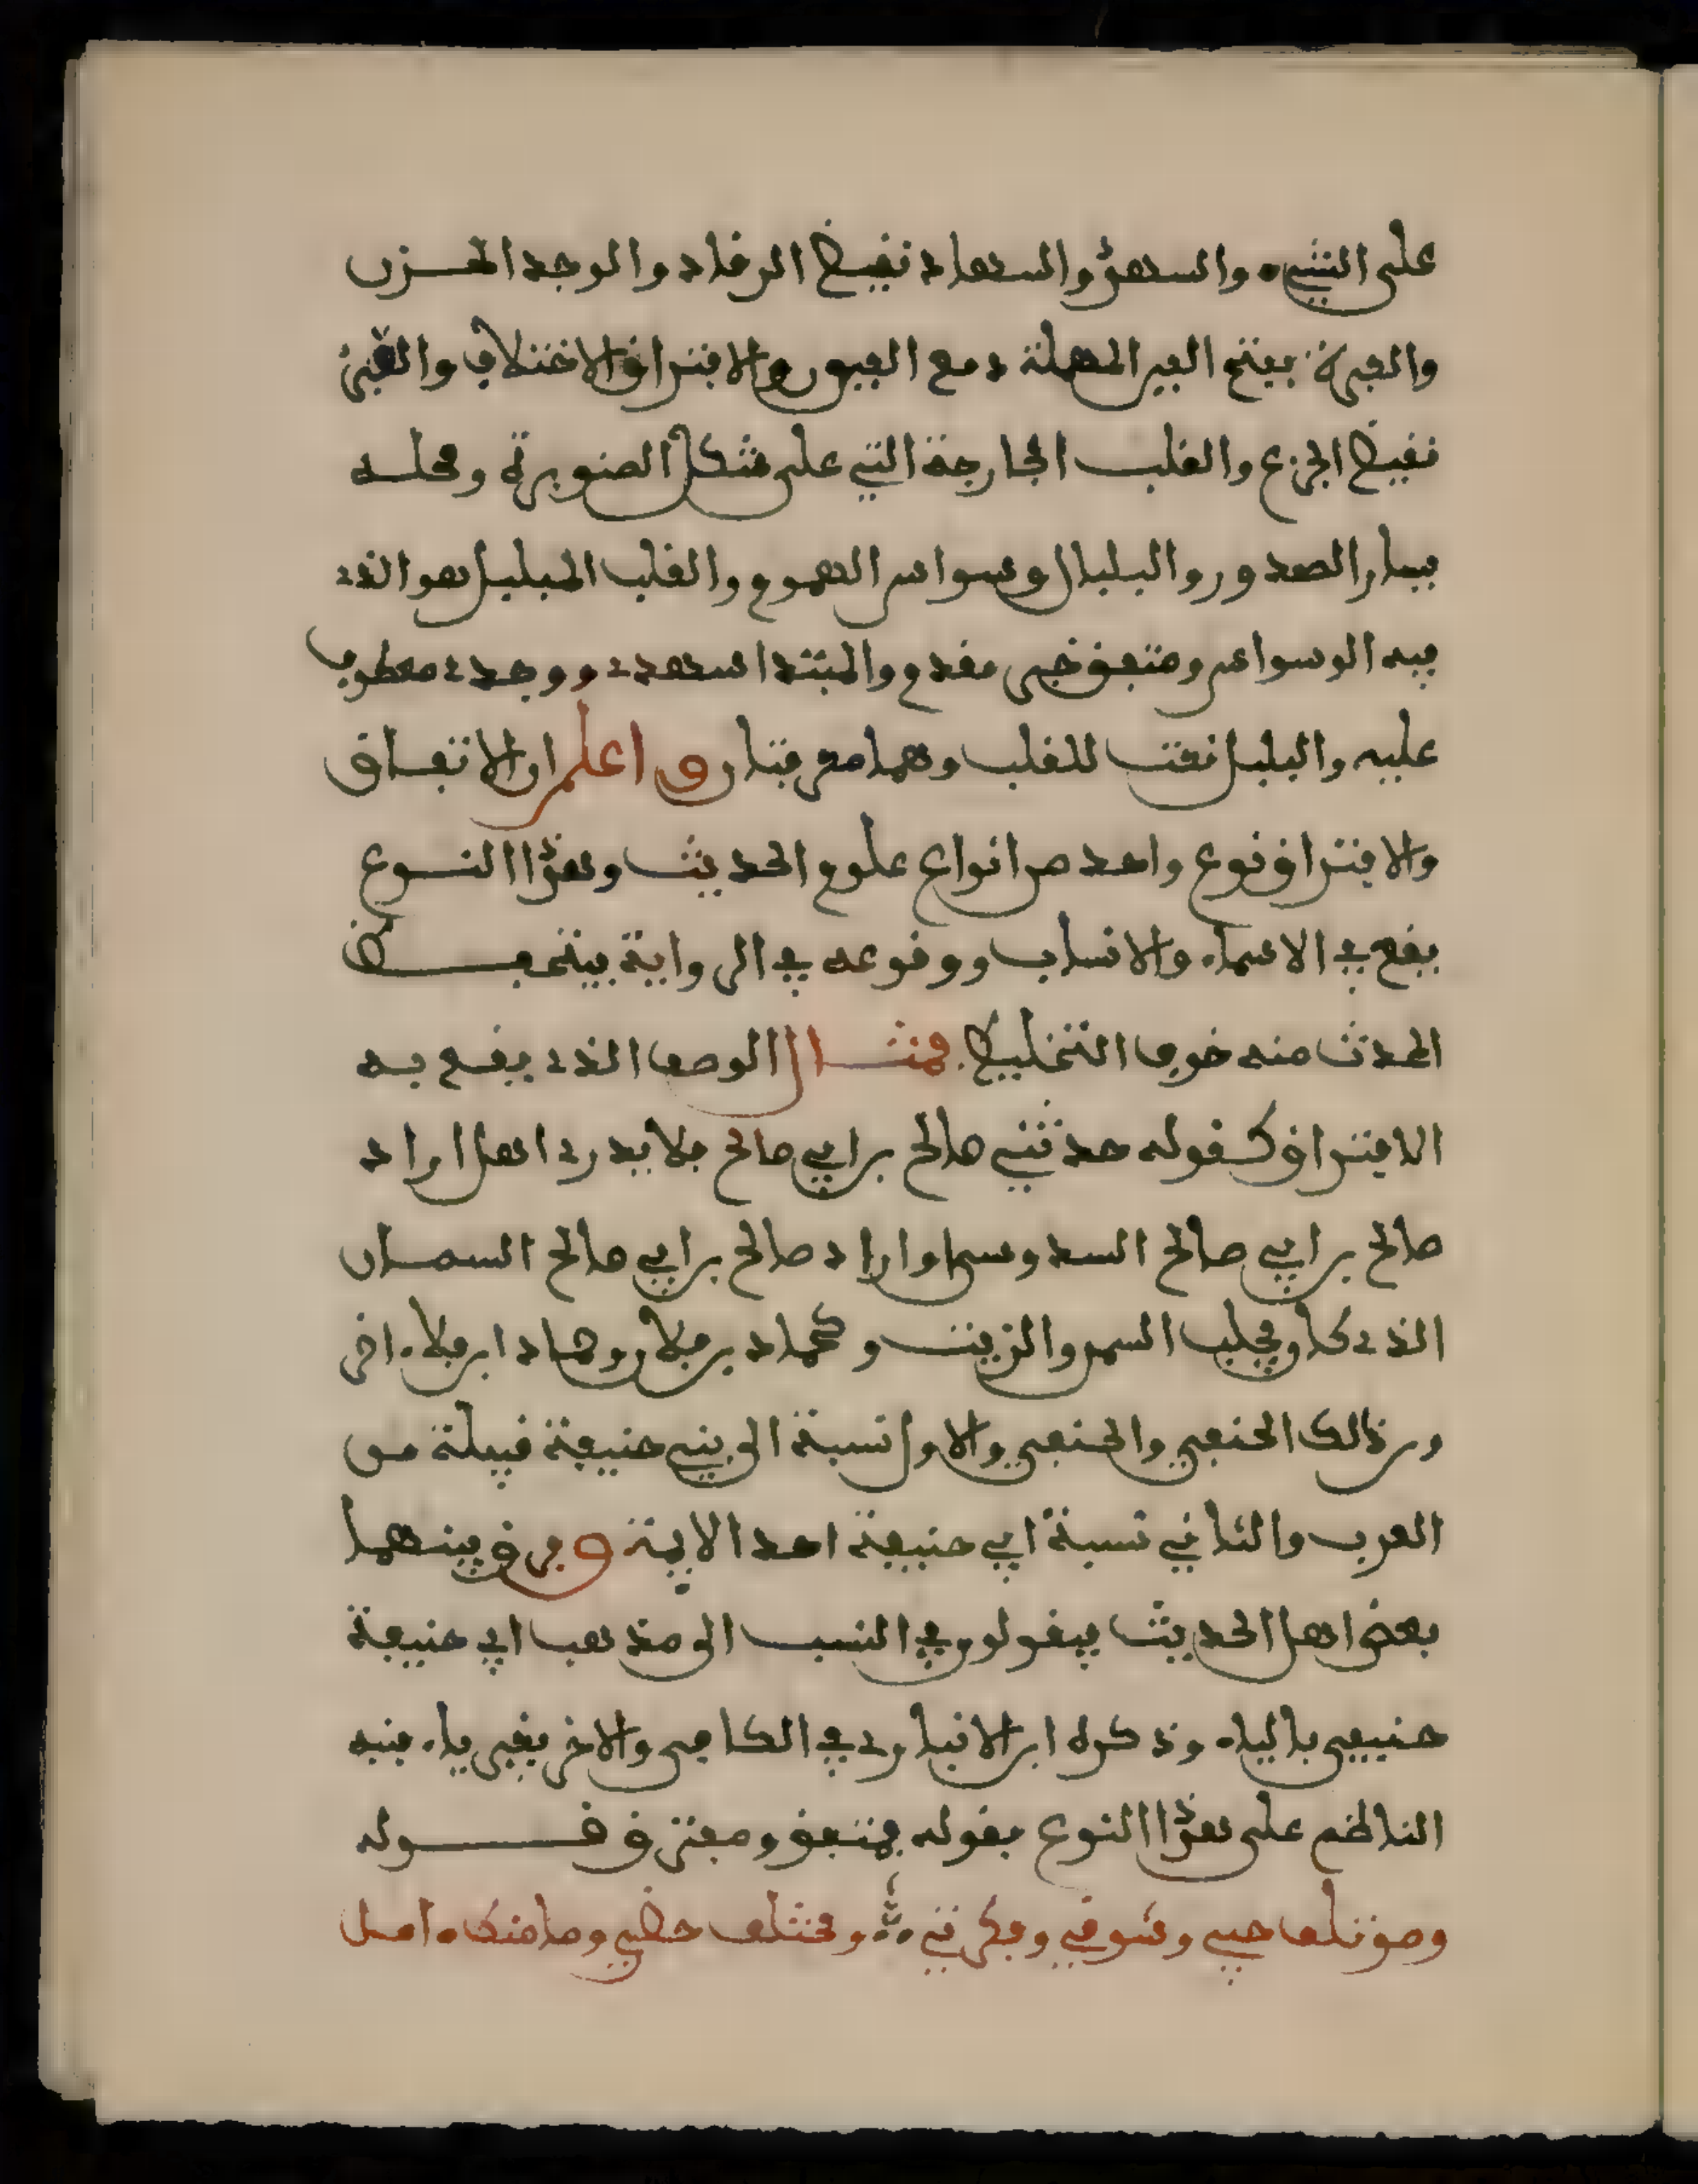 على الشيء والسهد والسهاد نقيض الرقاد والوجد الحزن
والعبرة بفتح العين المهملة دمع العيون والافتراق الاختلاف والصبر
نقيض الجزع والقلب الجارحة التي على شكل الصنوبرة ومحله
يسار الصدور والبلبال وسواس الهموم والقلب المبلبل هو الذي
فيه الوسواس ومتفق خبر مقدم والمبتدا سهدي ووجدي معطوف
عليه والبلبل نعت للقلب وهما معرفتان واعلم ان الاتفاق
والافتراق نوع واحد من انواع علوم الحديث وهذا النوع
يقع في الاسماء والانساب ووقوعه في الرواية فيتحفظ
المحدث منه خوف التخليط فمثال الوصف الذي يقع به
الافتراق كقوله حدثني صالح بن ابي صالح فلا يدرى اهل اراد
صالح بن ابي صالح السدوسي او اراد صالح بن ابي صالح السمان
الذي كان يجلب السمن والزيت وحماد بن فلان وحماد ابن فلان اخر
ومن ذالك الحنفي والحنفي والاول نسبة الى بني حنيفة قبيلة من
العرب والثاني نسبة ابي حنيفة احد الايمة وفرق بينهما
بعض اهل الحديث فيقولون في النسب الى مذهب ابي حنيفة
حنيفي بالياء وذكره ابن الانباري في الكافي والاخر بغير ياء فنبه
الناظم على هذا النوع بقوله فمتفق ومفترق قوله
وموتلف حبي وشوقي وفكرتي ومختلف حظي وما منك امل